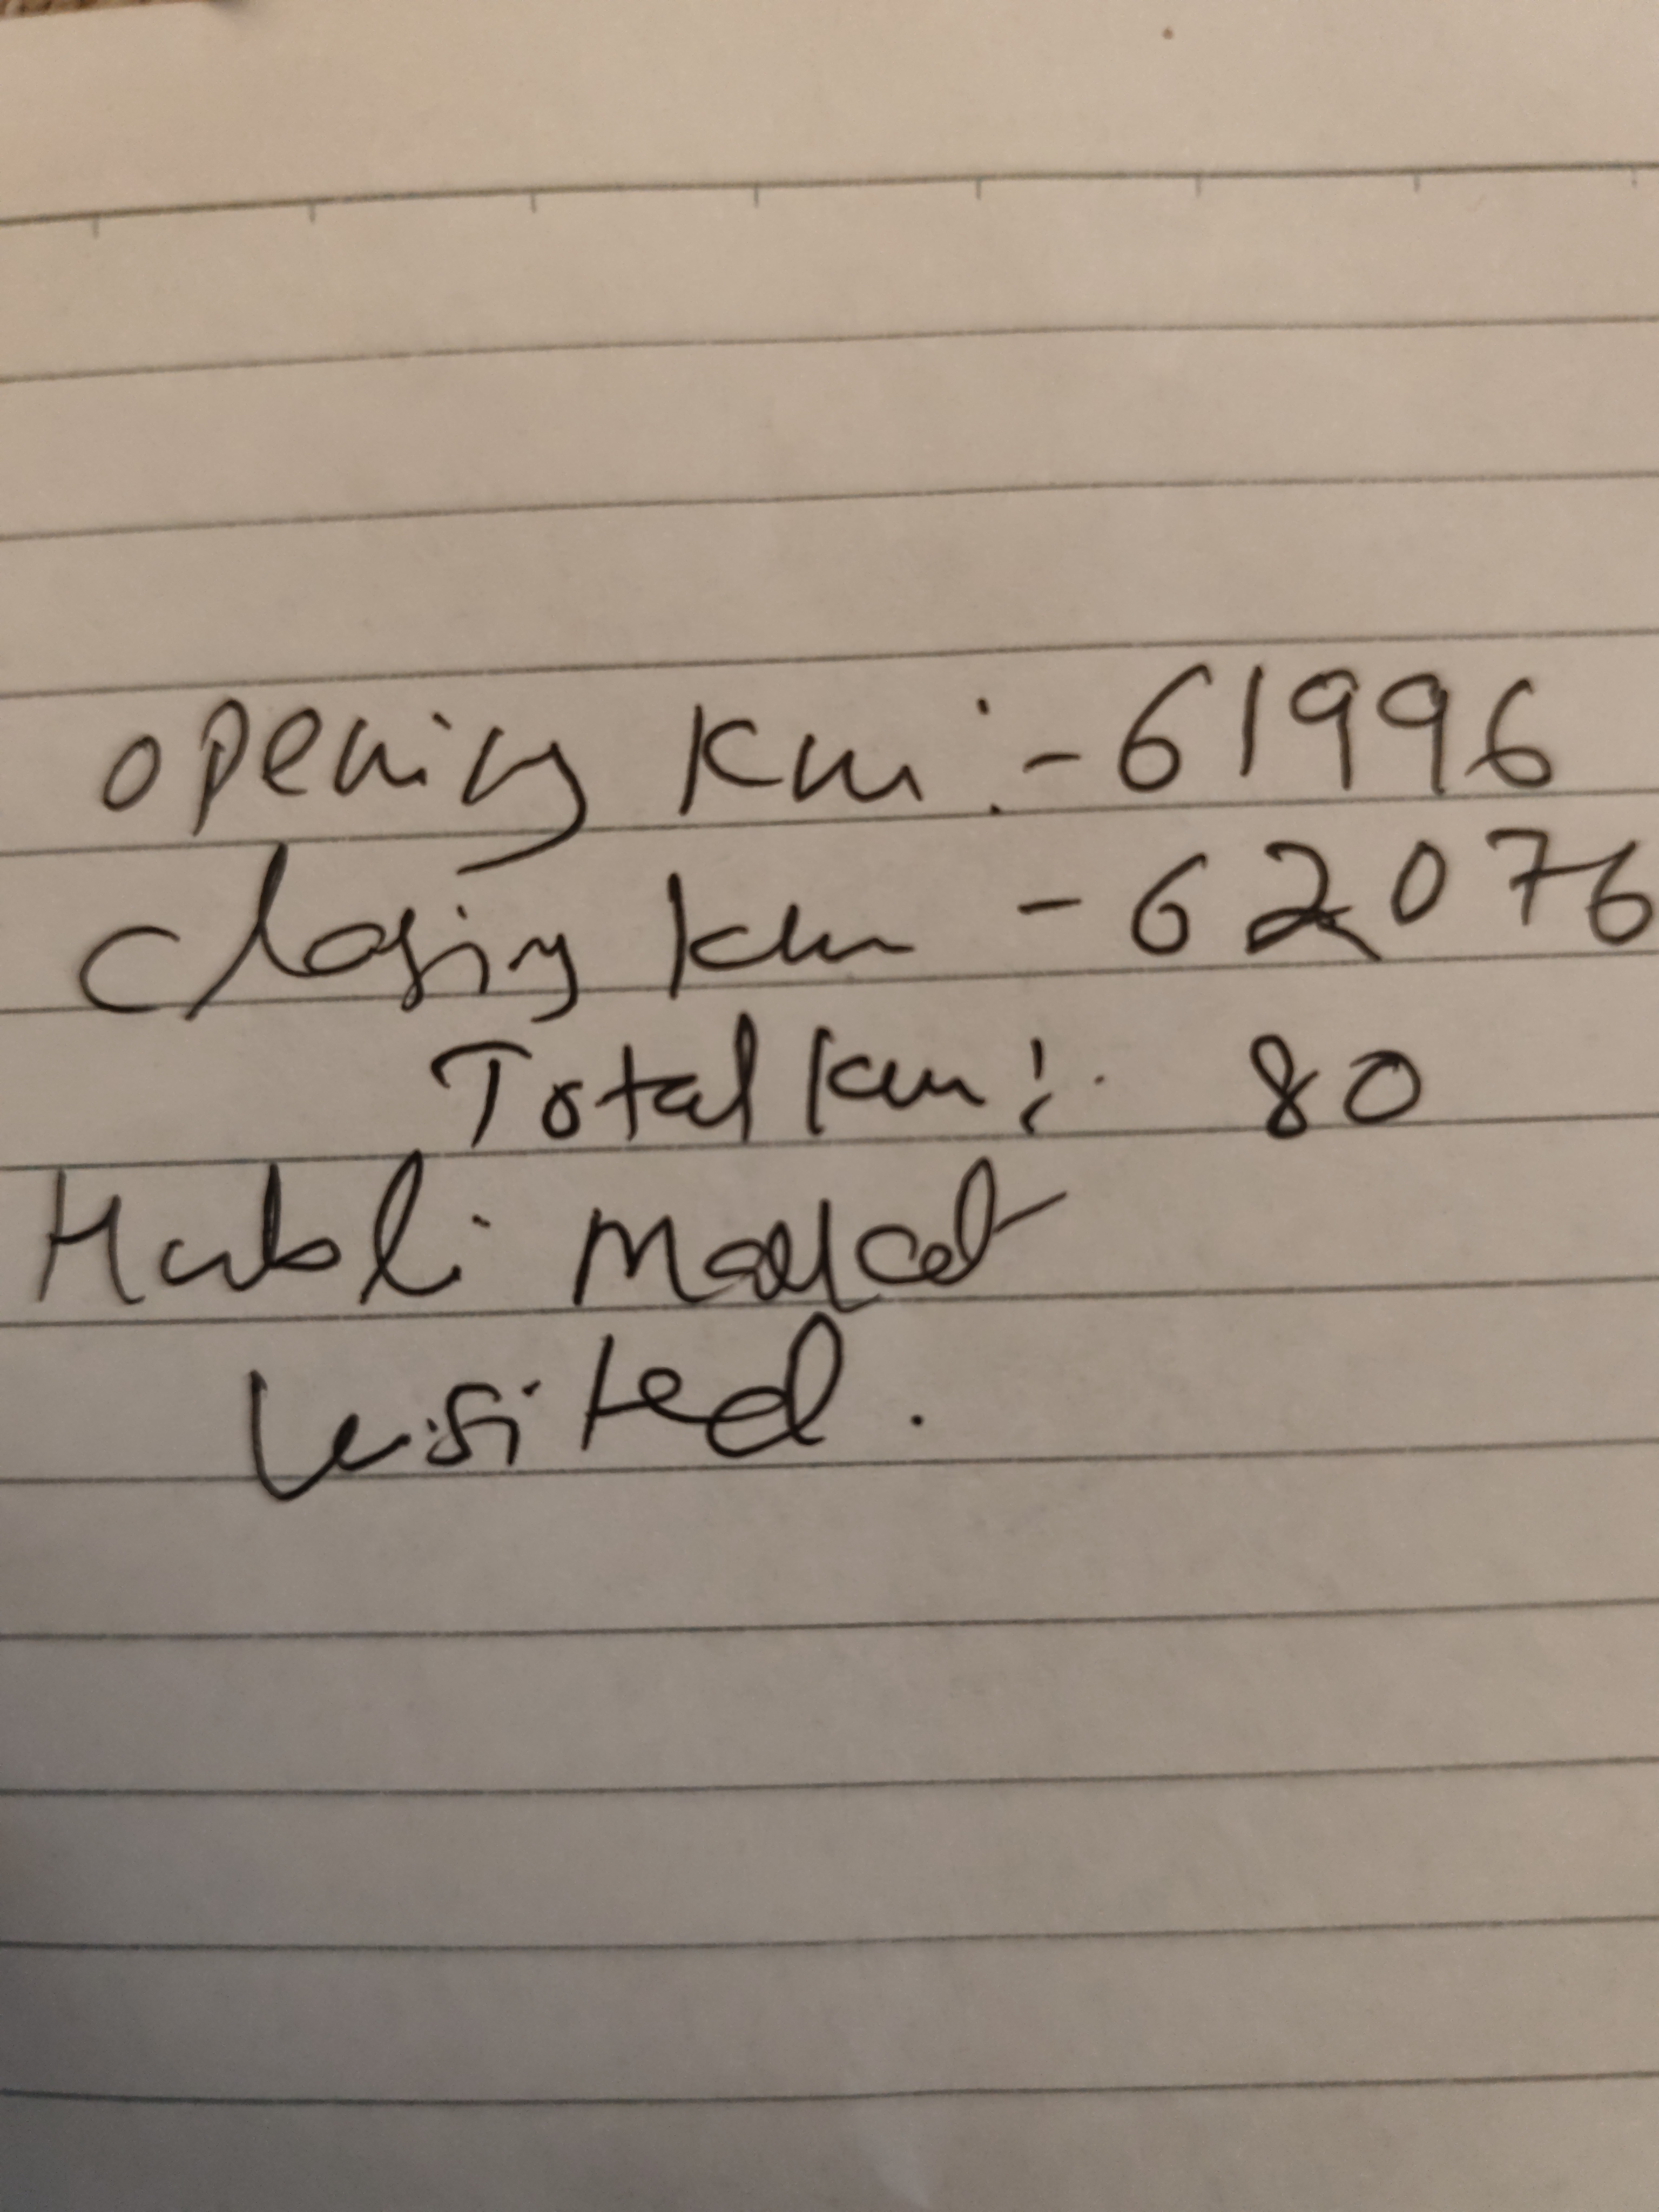 opening Km :- 61996
closing km - 62076
Total km :- 80
Hubli Market
visited.